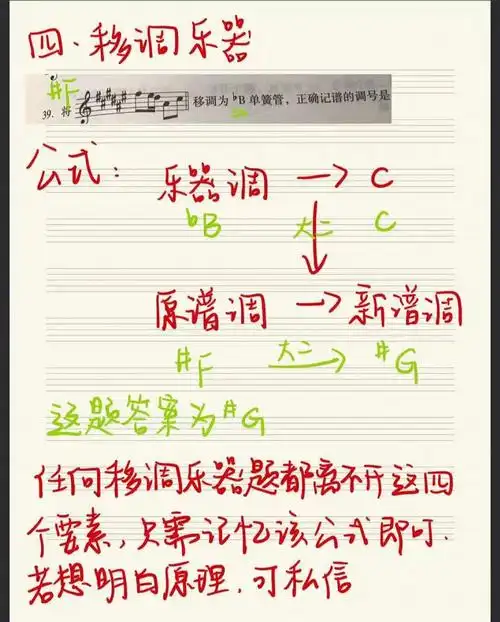 四、移调乐器
#F
39. 将 移调为 ♭B 单簧管，正确记谱的调号是
公式：
乐器调 → C
♭B 大二 C
原谱调 → 新谱调
#F 大二 #G
这题答案为 #G
任何移调乐器题都离不开这四
个要素，只需记忆该公式即可.
若想明白原理，可私信